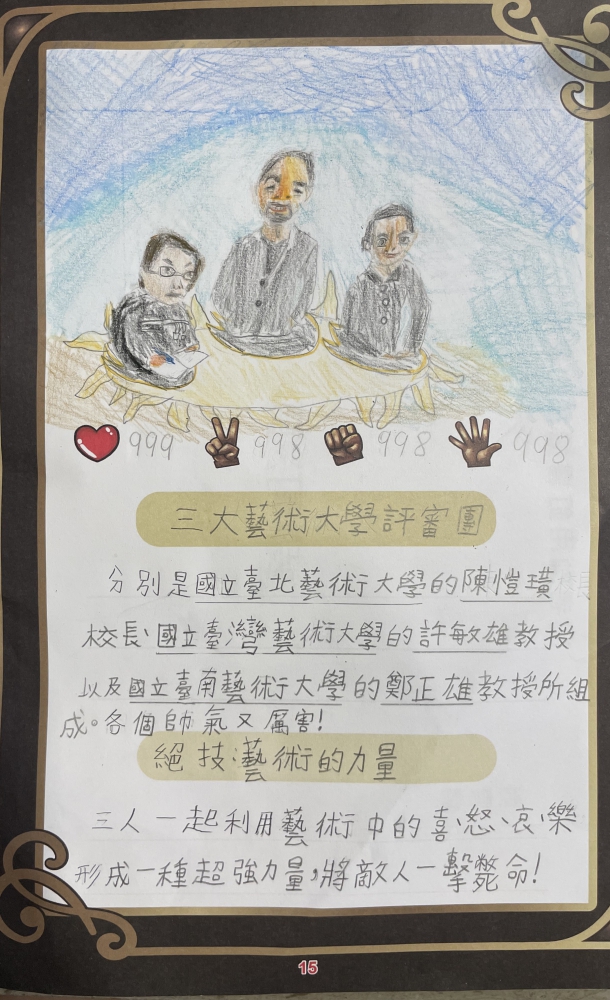 999 998 998 998
三大藝術大學評審團
分別是國立臺北藝術大學的陳愷璜
校長、國立臺灣藝術大學的許敏雄教授
以及國立臺南藝術大學的鄭正雄教授所組
成。各個帥氣又厲害!
絕技:藝術的力量
三人一起利用藝術中的喜、怒、哀、樂
形成一種超強力量,將敵人一擊斃命!
15